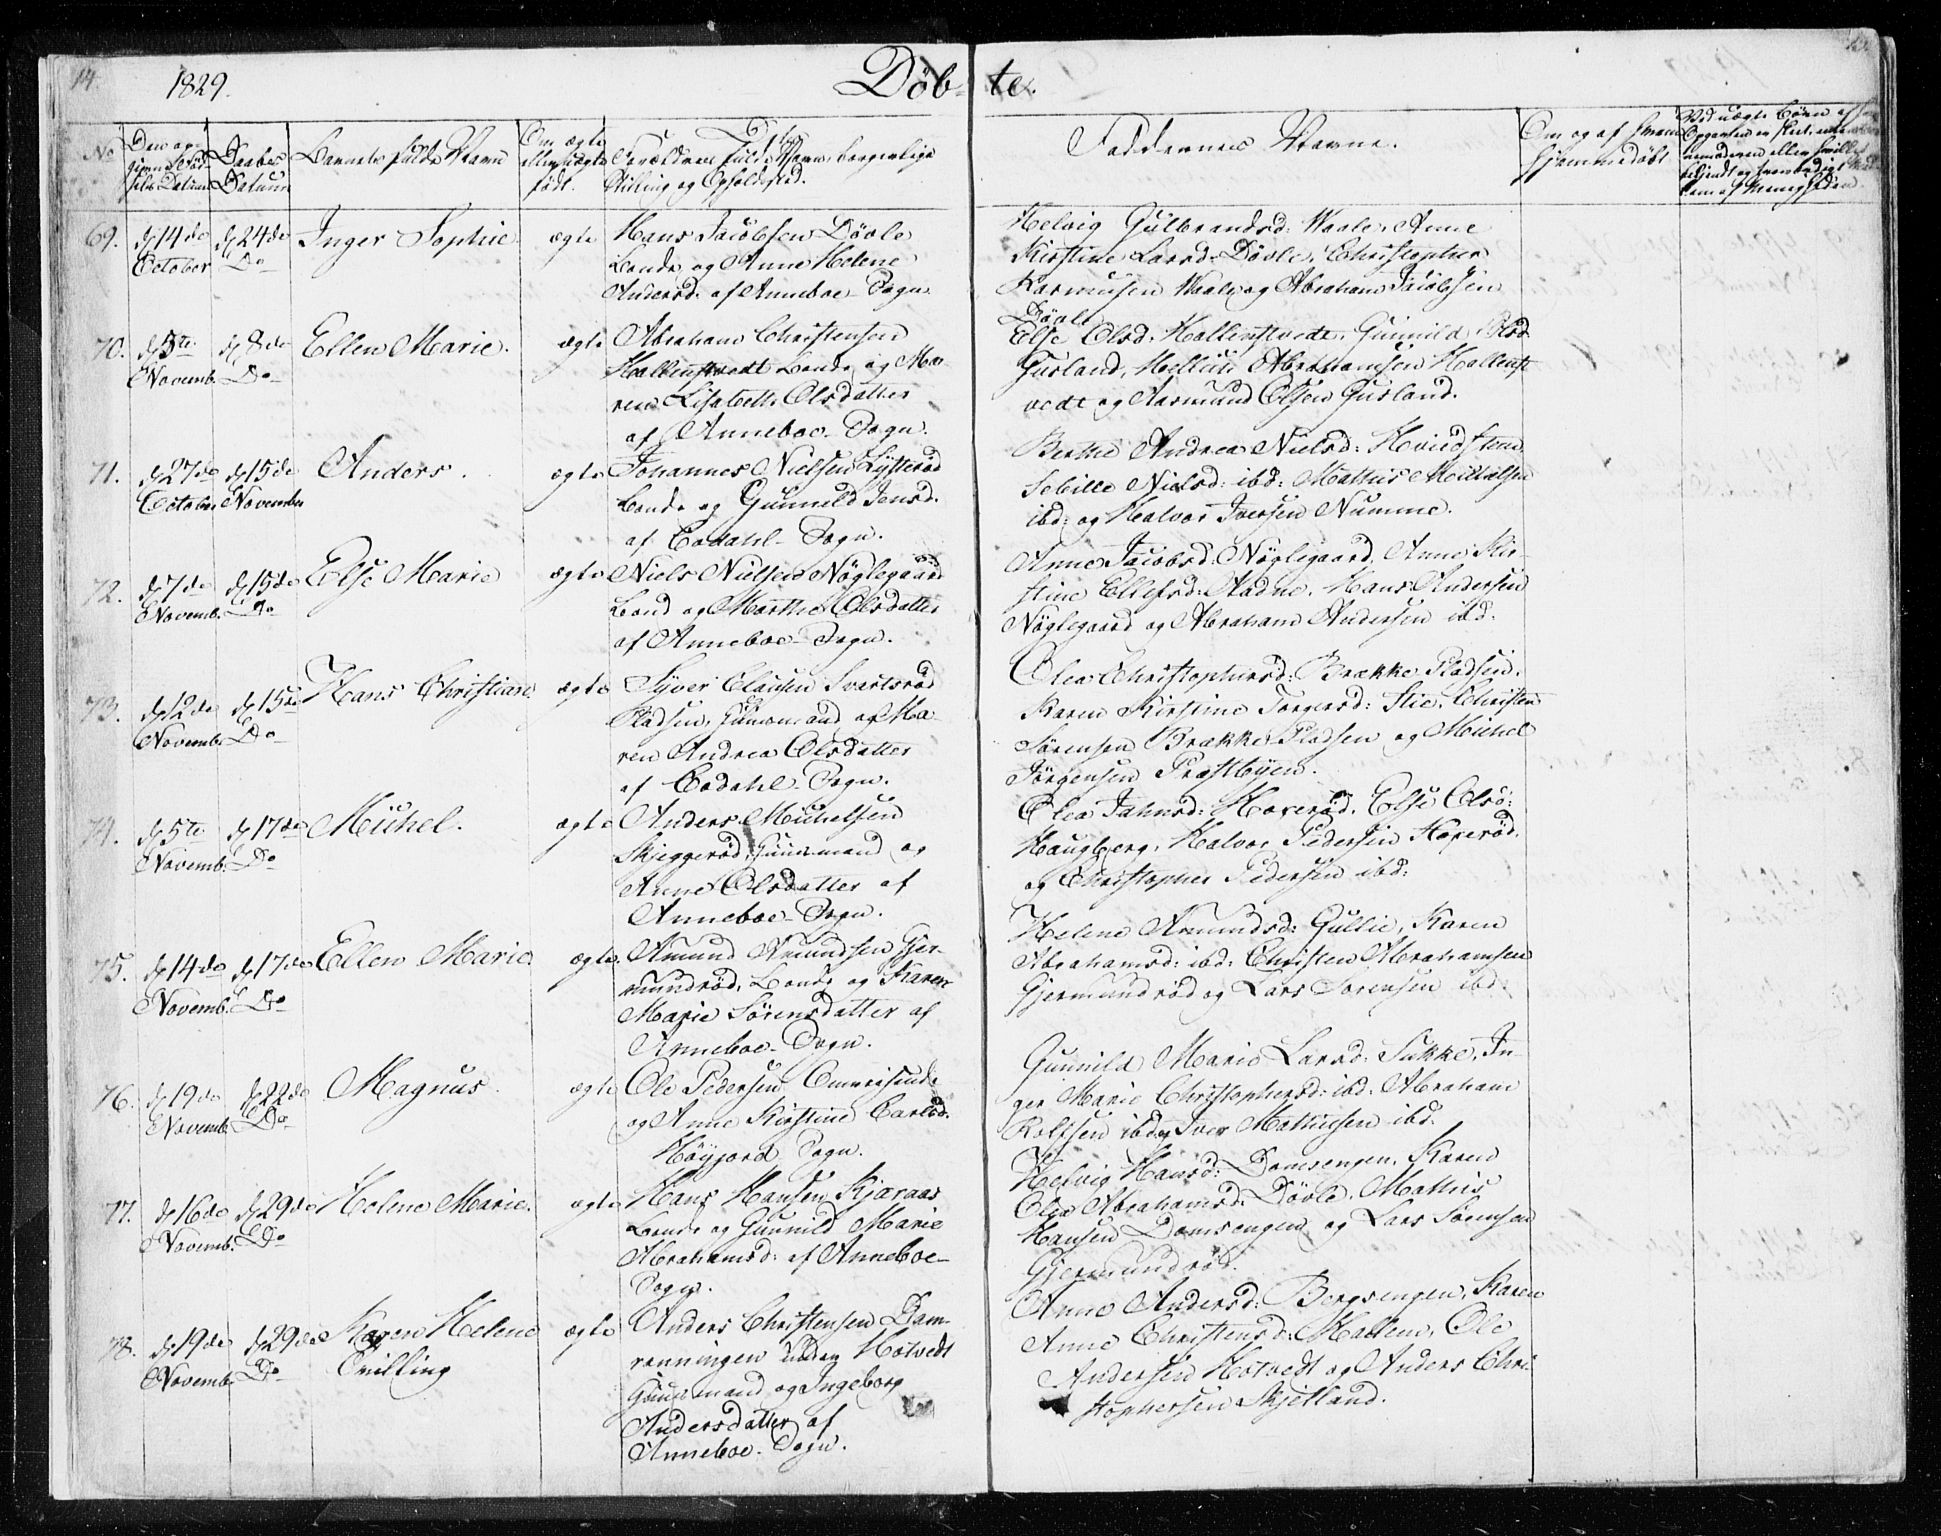 14.
1829.
Døb-
te.
No
Datum
Daabs
Datum
Barnets fulde Navn
Om ægte
født.
Forældrenes fulde Navn, borgerlige
Stilling og Opholdssted.
Faddernes Navne.
Om og af hvem
hjemmedøbt
69. d 14de d 24de Inger Sophie ægte Hans Jacobsen Døvle
October Do Bonde og Anne Helene
Andersd. af Anneboe Sogn
Helvig Gulbrandsd: Waale, Anne
Kirstine Larsd: Døvle, Christopher
Rasmusen Waale og Abraham Jacobsen
Døvle
70. d 5te d 8de Ellen Marie. ægte Abraham Christensen
Novemb. Do Hallenstvedt Bonde og Ma-
ren Lisabeth Olsdatter
af Anneboe Sogn.
Else Olsd. Hallenstvedt, Gunnild Olsd
Gusland, Abrahamsen Hallenst
vedt og Aasmund Olsen Gusland.
71. d 27de d 15de Anders. ægte Johannes Nielsen Lytterød
October November Bonde og Gunneld Jensd.
af Bodahl Sogn.
Berthe Andrea Nielsd: Hvidsteen
Sebille Nielsd: ibd: Mathis
ibd: og Halvor Iversen Numme.
72. d 7de d 15de Else Marie ægte Niels Nielsen Nøglegaard
Novemb. Do Bond og Marthe Olsdatter
af Anneboe Sogn.
Anne Jacobsd. Nøglegaard, Anne Kir-
stine Ellefsd: Aadne, Hans Andersen
Nøglegaard og Abraham Andersen ibd.
73. d 12de d 15de Hans Christian ægte Syver Clausen Svartsrød
Novemb. Do Pladsen, Huusmand og Ma-
ren Andrea Olsdatter
af Bodahl Sogn.
Olea Christophersd: Brække Pladsen,
Karen Kirstine Torgersd: Stie, Christen
Sørensen Brække Pladsen og Michel
Jørgensen Præstbyen.
74. d 5te d 17de Michel. ægte Anders Michelsen
Novemb. Do Skjeggerød, Huusmand og
Anne Olsdatter af
Anneboe Sogn.
Olea Jahnsd: Haverød, Else Olsd:
Haugberg, Halvor Pedersen Haverød,
og Christopher Pedersen ibd:
75. d 14de d 17de Ellen Marie ægte Amund Amundsen Gjer-
Novemb. Do mundrød, Bonde og Karen
Marie Sørensdatter af
Anneboe Sogn.
Helene Amundsd: Gullie, Karen
Abrahamsd: ibd: Christen Abrahamsen
Gjermundrød og Lars Sørensen ibd:
76. d 19de d 22de Magnus. ægte Ole Pedersen Omreisende
Novemb. Do og Anne Kirstine Carlsd.
Høyjord Sogn.
Gunnild Marie Larsd: Sukke, In-
ger Marie Christophersd: ibd: Abraham
Rolfsen ibd og Iver Mathisen ibd.
77. d 16de d 29de Helene Marie. ægte Hans Hansen Kjæraas
Novemb. Do Bonde og Gunnild Marie
Abrahamsd: af Anneboe
Sogn.
Helvig Hansd: Damsengen, Karen
Olea Abrahamsd: Døvle, Mathis
Hansen Damsengen og Lars Sørensen
Gjermundrød.
78. d 19de d 29de Karen Helene ægte Anders Christensen Dam-
Novemb. Do Tvilling rønningen under Hotvedt
Huusmand og Ingeborg
Andersdatter af
Anneboe Sogn.
Anne Andersd: Bergsengen, Karen
Anne Christensd: Hallem, Ole
Andersen Hotvedt og Anders Chri-
stophersen Skjelland.